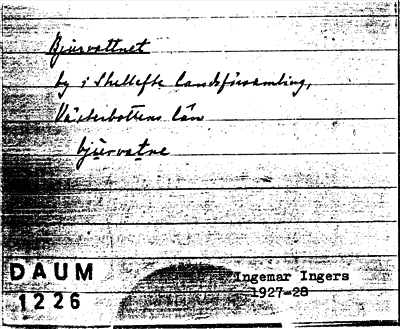 Bjurvattnet
by i Skellefte landsförsamling,
Västerbottens län
bju̱rvatne
DAUM
1226
Ingemar Ingers
1927-28